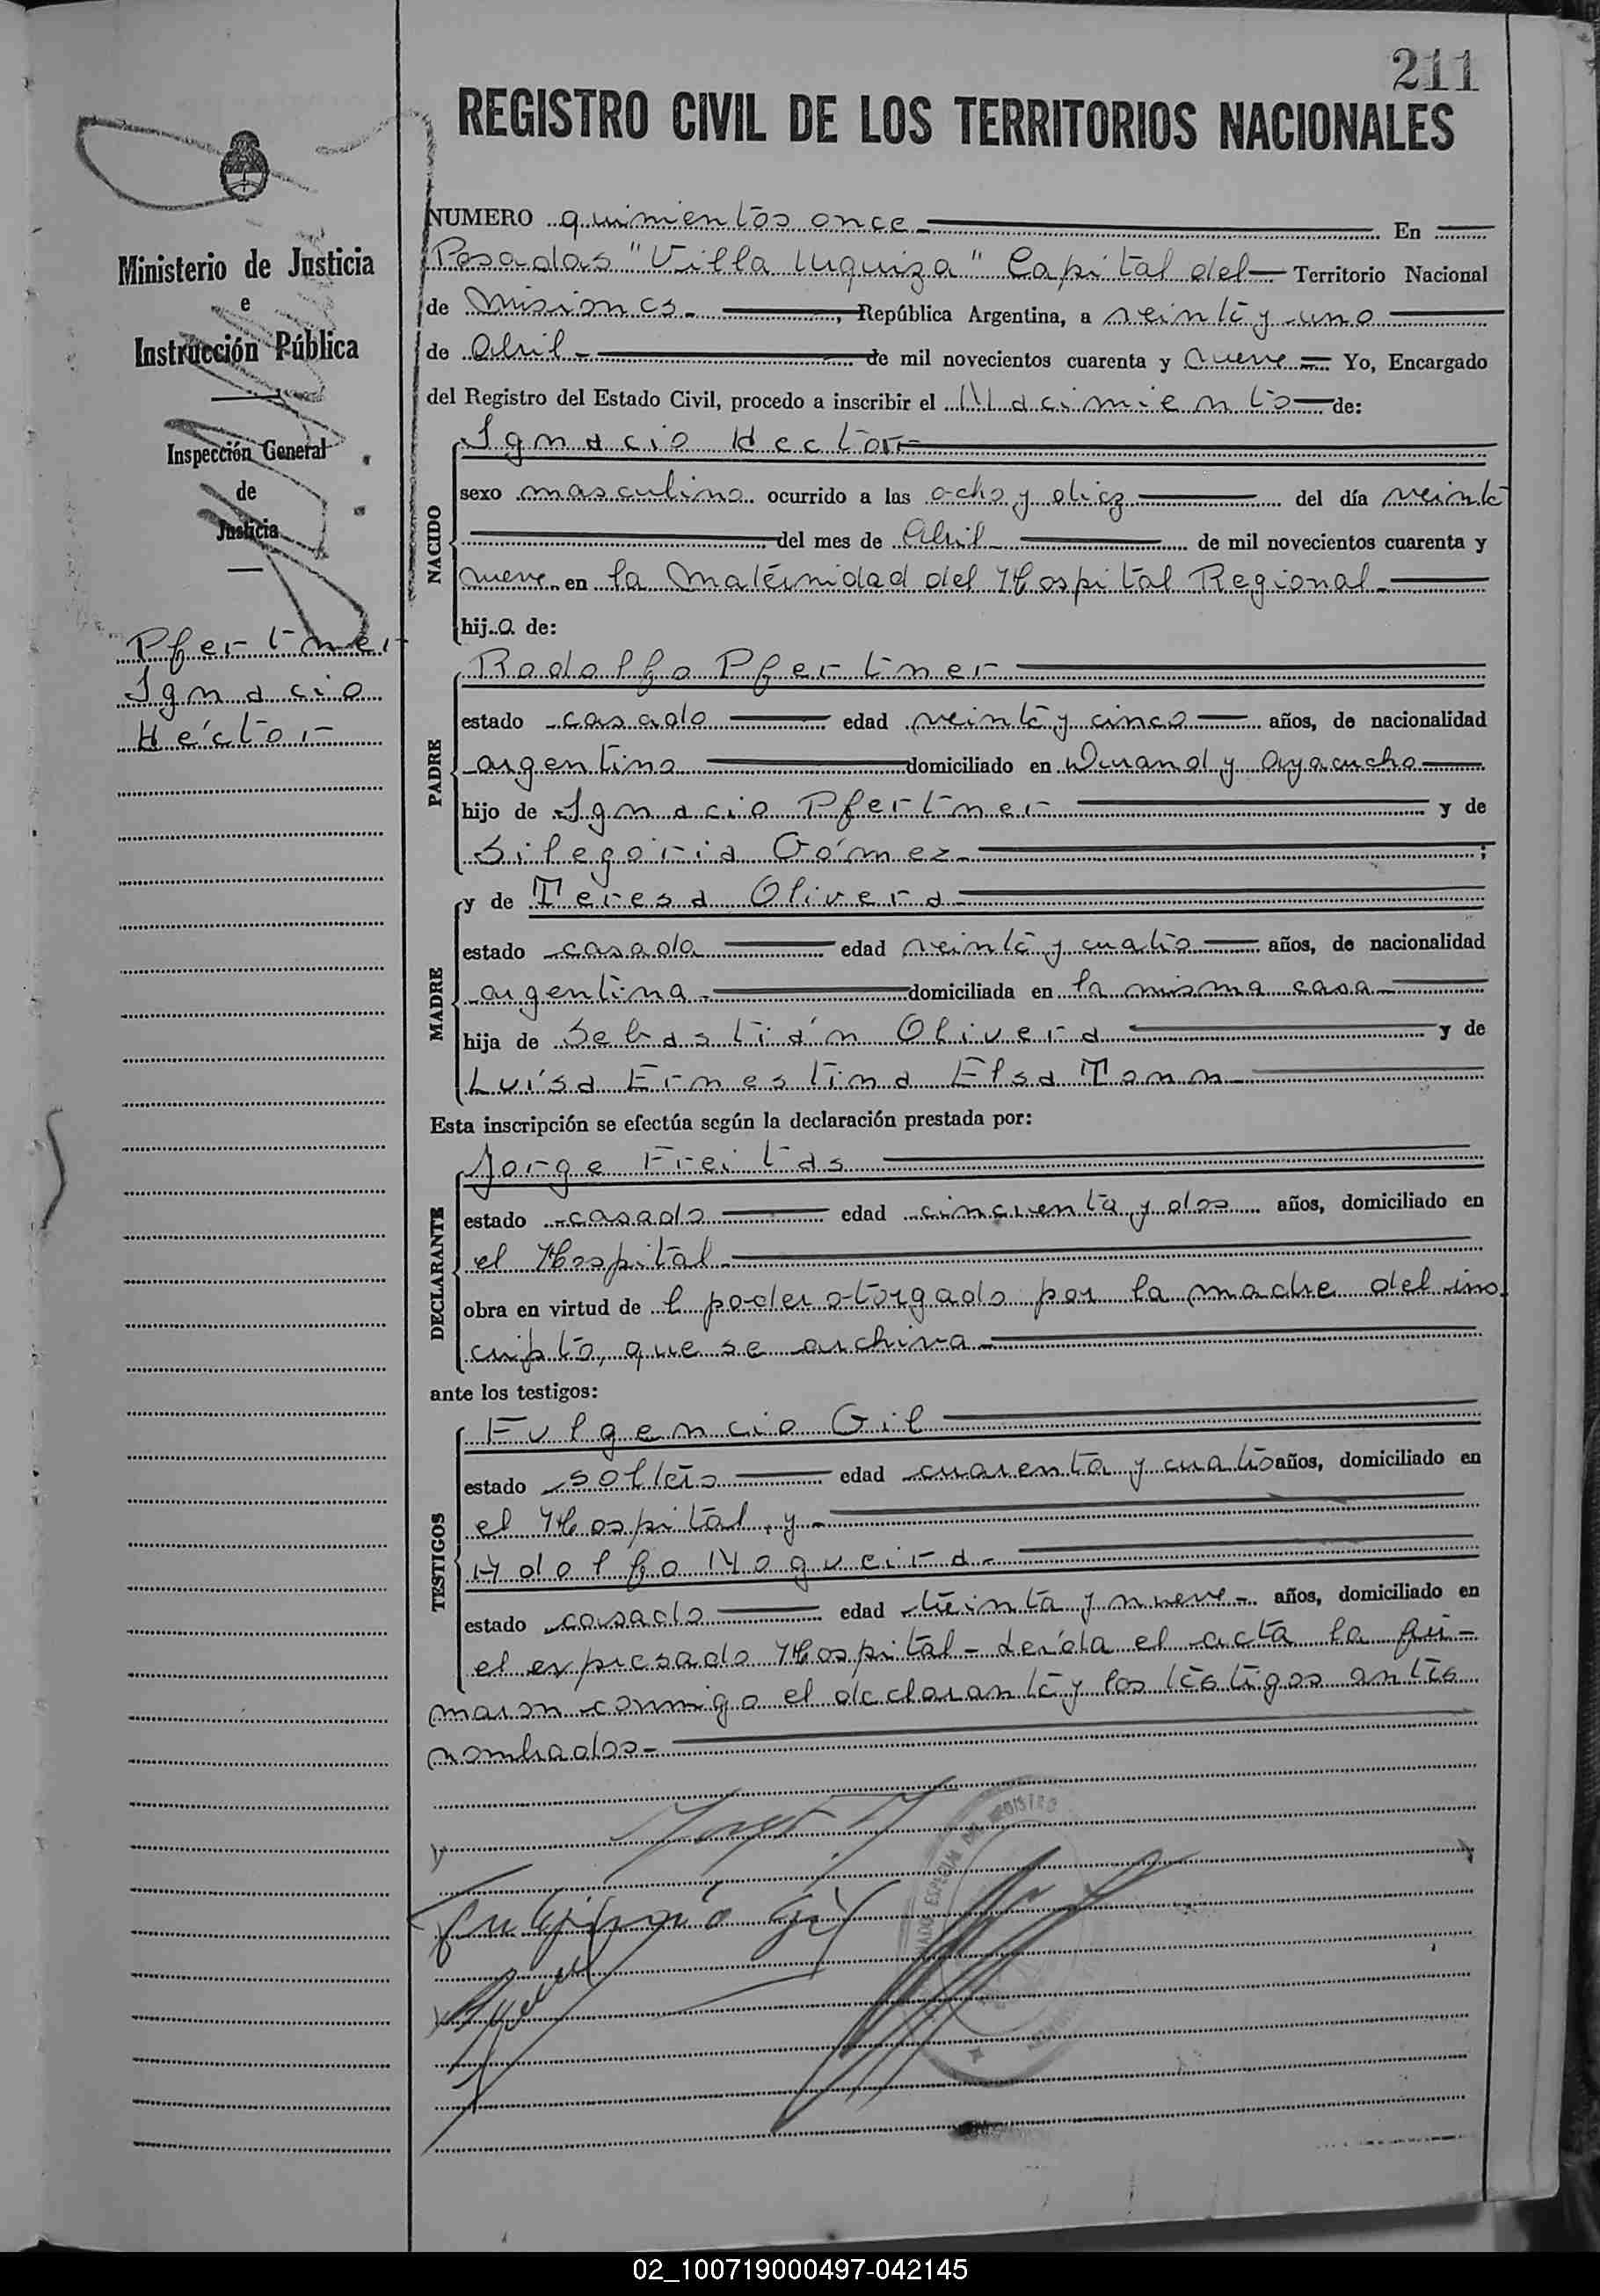 211
REGISTRO CIVIL DE LOS TERRITORIOS NACIONALES
Ministerio de Justicia
e
Instrucción Pública
Inspección General
de
Justicia
Pfertner
Ignacio
Héctor
NUMERO quinientos once En
Posadas "Villa Urquiza" Capital del Territorio Nacional
de Misiones. , República Argentina, a veinte y uno
de Abril - de mil novecientos cuarenta y nueve Yo, Encargado
del Registro del Estado Civil, procedo a inscribir el Nacimiento de:
NACIDO
Ignacio Hector
sexo masculino ocurrido a las ocho y diez del día veinte
del mes de Abril de mil novecientos cuarenta y
nueve en la Maternidad del Hospital Regional
hijo de:
PADRE
Rodolfo Pfertner
estado casado edad veinte y cinco años, de nacionalidad
argentino domiciliado en y Ayacucho
hijo de Ignacio Pfertner y de
Gómez ;
MADRE
y de Teresa Olivera
estado casada edad veinte y cuatro años, de nacionalidad
argentina domiciliada en la misma casa
hija de Sebastián Olivera y de
Luísa Ernestina Elsa Tonn
Esta inscripción se efectúa según la declaración prestada por:
DECLARANTE
Jorge Freitas
estado casado edad cincuenta y dos años, domiciliado en
el Hospital
obra en virtud de l poder otorgado por la madre del ins-
cripto, que se archiva
ante los testigos:
TESTIGOS
Fulgencio Gil
estado soltero edad cuarenta y cuatro años, domiciliado en
el Hospital, y
Adolfo Nogueira
estado casado edad treinta y nueve años, domiciliado en
el expresado Hospital - Leída el acta la fir-
maron conmigo el declarante y los testigos antes
nombrados
Fulgencio Gil
REGISTRO
02_100719000497-042145